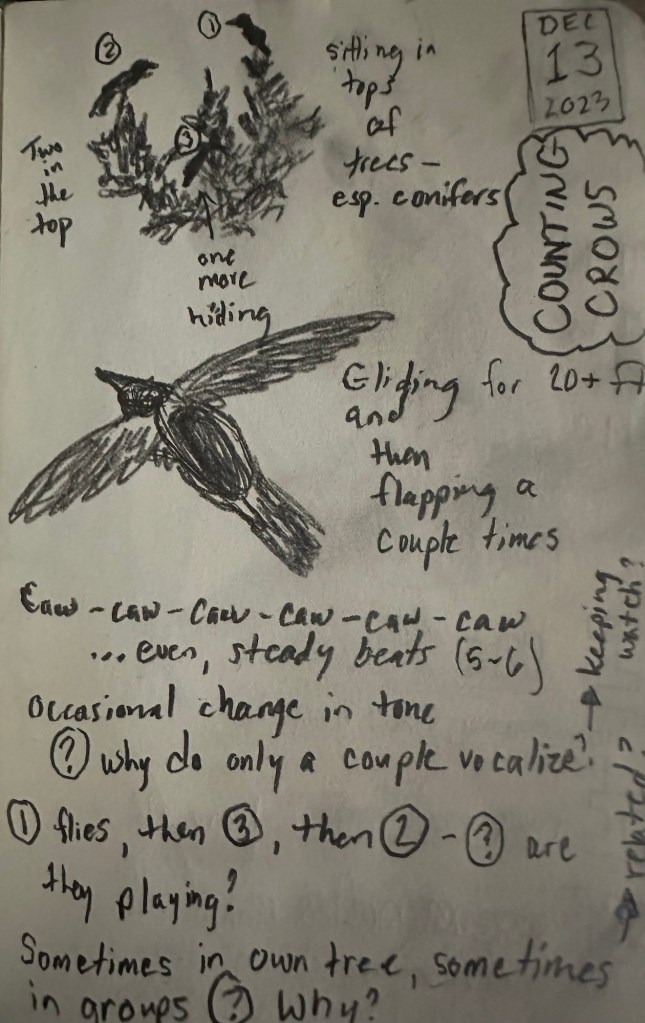 DEC
13
2023
COUNTING
CROWS
①
②
③
sitting in
tops
of
trees –
esp. conifers
Two
in
the
top
one
more
hiding
Gliding for 20+ ft
and
then
flapping a
couple times
Caw – caw – Caw – Caw – caw – caw
... even, steady beats (5-6)
Occasional change in tone
? why do only a couple vocalize?
→ keeping
watch?
① flies, then ③, then ② – ? are
they playing?
→ related?
Sometimes in own tree, sometimes
in groups ? Why?